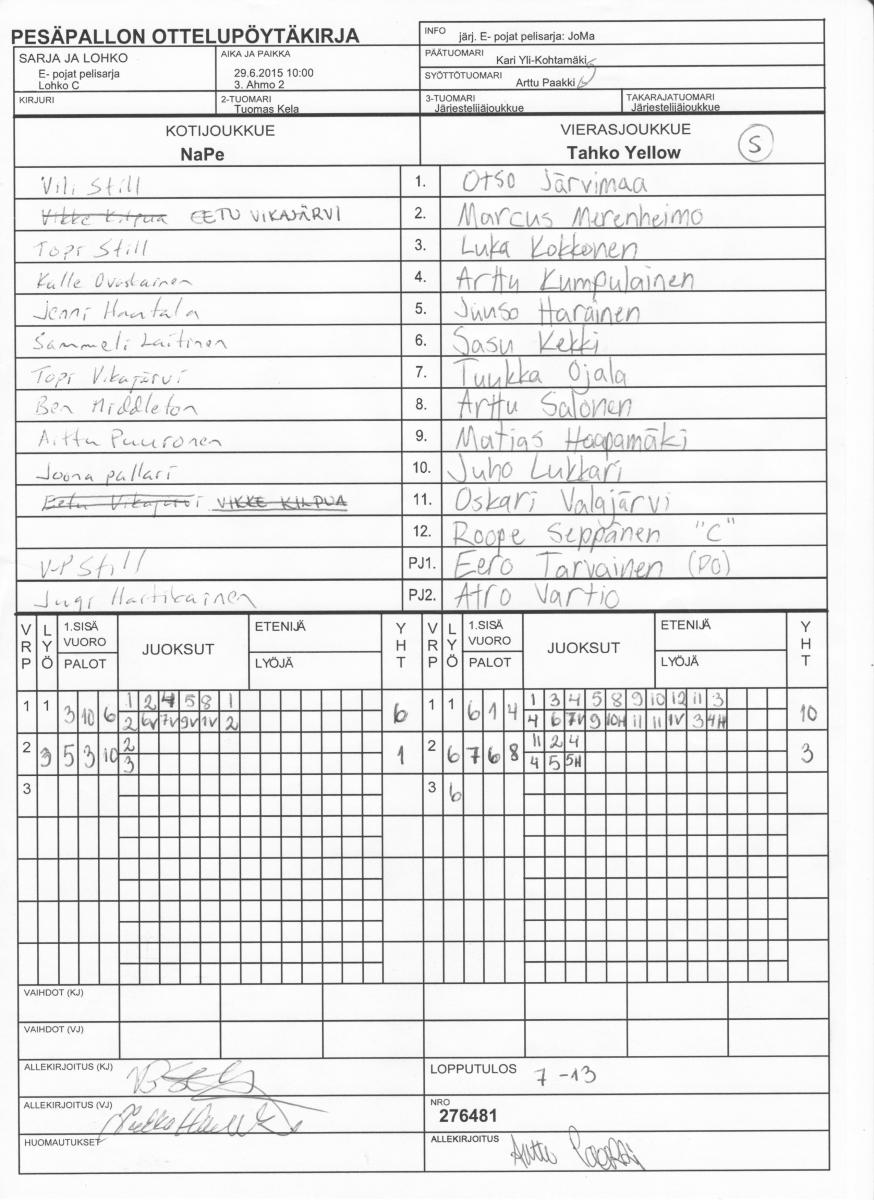 PESÄPALLON OTTELUPÖYTÄKIRJA
INFO järj. E- pojat pelisarja: JoMa
SARJA JA LOHKO
E- pojat pelisarja
Lohko C
AIKA JA PAIKKA
29.6.2015 10:00
3. Ahmo 2
PÄÄTUOMARI
Kari Yli-Kohtamäki
SYÖTTÖTUOMARI
Arttu Paakki
KIRJURI
2-TUOMARI
Tuomas Kela
3-TUOMARI
Järjestelijäjoukkue
TAKARAJATUOMARI
Järjestelijäjoukkue
KOTIJOUKKUE
NaPe
VIERASJOUKKUE
Tahko Yellow S
Vili Still 1. Otso Järvimaa
Vikke Kilpua EETU VIKAJÄRVI 2. Marcus Merenheimo
Topi Still 3. Luka Kokkonen
Kalle 4. Arttu Kumpulainen
Jenni Hantala 5. Juuso Haräinen
Sammeli Laitinen 6. Sasu Kekki
Topi Vikajärvi 7. Tuukka Ojala
Ben Middleton 8. Arttu Salonen
Aittu Puuronen 9. Matias Haapamäki
Joona pallari 10. Juho Lukkari
Eetu Vikajärvi VIKKE KILPUA 11. Oskari Valajärvi
12. Roope Seppänen "C"
V-P Still PJ1. Eero Tarvainen (PO)
Hartikainen PJ2. Atro Vartio
VRP LYÖ 1.SISÄ VUORO PALOT JUOKSUT ETENIJÄ LYÖJÄ YHT VRP LYÖ 1.SISÄ VUORO PALOT JUOKSUT ETENIJÄ LYÖJÄ YHT
1 1 3 10 6 1 2 4 5 8 1 6 1 1 6 1 4 1 3 4 5 8 9 10 12 11 3 10
2 6V 7V 9V 1V 2 4 6 7V 9 10H 11 11 1V 3 4H
2 3 5 3 10 2 1 2 6 7 6 8 11 2 4 3
3 4 5 5H
3 3 6
VAIHDOT (KJ)
VAIHDOT (VJ)
ALLEKIRJOITUS (KJ)
LOPPUTULOS 7 -13
ALLEKIRJOITUS (VJ)
NRO
276481
HUOMAUTUKSET
ALLEKIRJOITUS Arttu Paakki